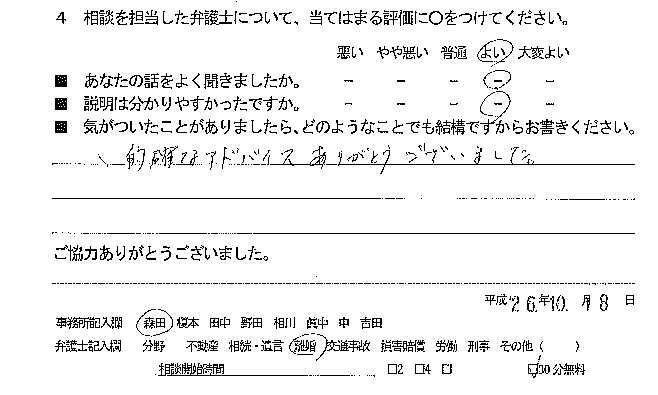 4 相談を担当した弁護士について、当てはまる評価に○をつけてください。
悪い やや悪い 普通 よい 大変よい
■ あなたの話をよく聞きましたか。 － － － － －
■ 説明は分かりやすかったですか。 － － － － －
■ 気がついたことがありましたら、どのようなことでも結構ですからお書きください。
的確なアドバイスありがとうございました。
ご協力ありがとうございました。
平成 26年 10月 18日
事務所記入欄 森田 榎本 田中 野田 相川 眞中 申 吉田
弁護士記入欄 分野 不動産 相続・遺言 離婚 交通事故 損害賠償 労働 刑事 その他（ ）
相談開始時間 □2 □4 □ 30分無料